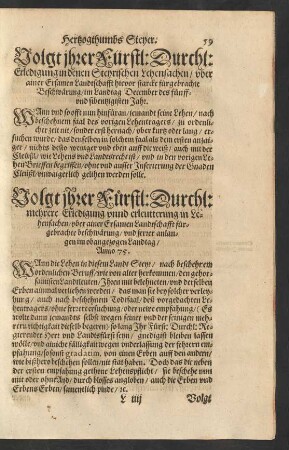 Hertzogthumbs Steyer. 59
Volgt jhrer Fürstl: Durchl:
Erledigung in denen Steyrischen Lehensachen / vber
ainer Ersamen Landtschafft hievor starck fürgebrachte
Beschwärung / im Landtag December des fünff-
vnd sibentzigisten Jahr.
WAnn vnd so offt nun hinfüran / jemandt seine Lehen / nach
beschehnem faal des vorigen Lehentragers / zu ordenli-
cher zeit nie / sonder erst hernach / vber kurtz oder lang / er-
suchen wurde / das denselben in solchem faal als dem ersten anzai-
ger / nichts desto weniger vnd vber auff diß weiß / auch mit der
Clausul / wie Lehens vnd Landtsrecht ist / vnd in den vorigen Le-
hen Brieffen begriffen / ohne vnd ausser Inserierung der Gnaden
Clausul / vnwaigerlich gelihen werden solle.
Volgt jhrer Fürstl: Durchl:
mehrere Erledigung vnnd erleutterung in Le-
hensachen / vber ainer Ersamen Landtschafft für-
gebrachte beschwärung / vnd ferrer anlan-
gen im obangezognen Landtag /
Anno 75.
WAnn die Lehen in disem Lande Steyr / nach beschehrem
ordenlichen Beruff / wie von alter herkommen / den gehor-
samisten Landtleuten / Ihnen mit belehneten / vnd derselben
Erben ainmal verlihen werden / das man sie bey solcher verleihung /
auch nach beschehenem Todtfaal / deß vorgedachten Le-
hentragers / ohne ferrer ersuechung / oder newe empfahung / (Es
wolte dann jemandes selbst wegen seiner vnd der seinigen meh-
rern richtigkait dieselb begeren) so lang Ihr Fürst: Durchl: Re-
gierender Herr vnd Landtsfürst sein / gnedigist bleiben lassen
wölle / vnd ainiche fälligkait wegen vnderlassung der fehrern em-
pfahung / sonst gradatim, von einen Erben auff den andern /
wie bißhero beschehen sollen / nit statt haben. Doch das die neben
der ersten empfahung gethone Lehenspflicht / sie beschehe nun
mit oder ohne Aid / durch blosses angloben / auch die Erben vnd
Erbens Erben / sament lich pinde / ꝛc.
L iiij Volgt